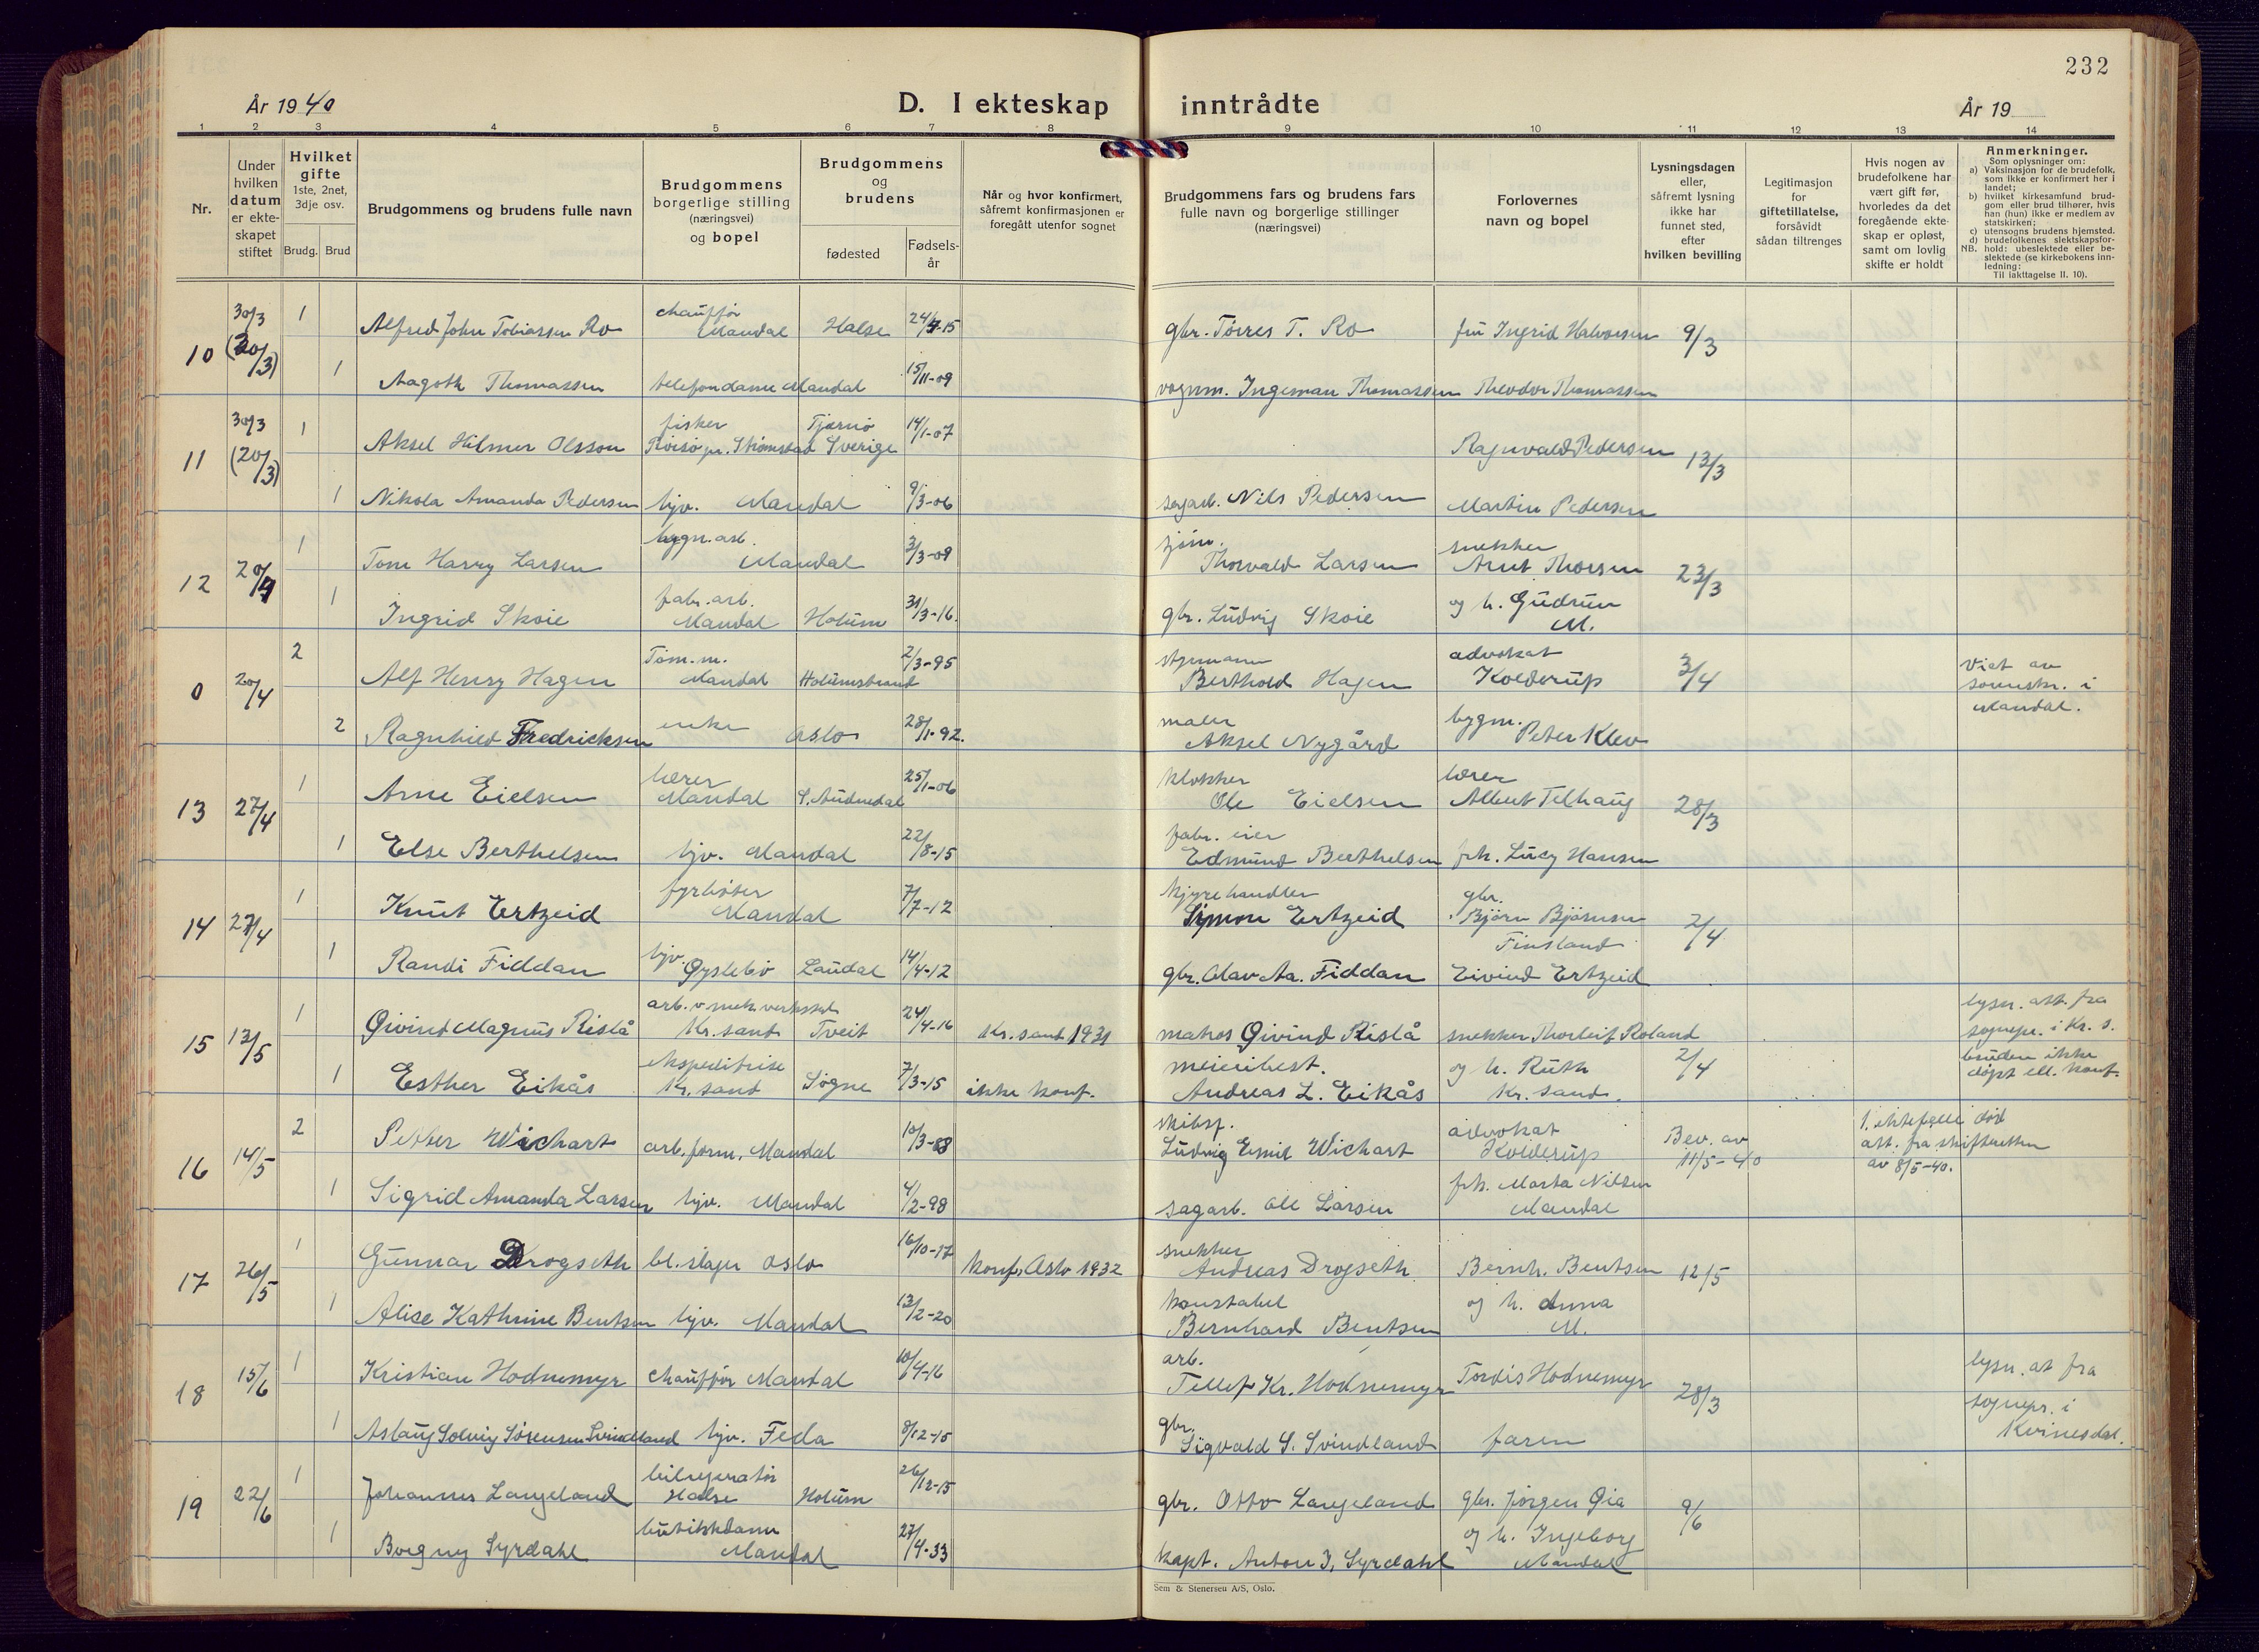 232
År 1940
D. I ekteskap inntrådte
År 19
1 2 3 4 5 6 7 8 9 10 11 12 13 14
Nr.
Under hvilken datum er ekteskapet stiftet
Hvilket gifte 1ste, 2net, 3dje osv.
Brudg. Brud
Brudgommens og brudens fulle navn
Brudgommens borgerlige stilling (næringsvei) og bopel
Brudgommens og brudens
fødested
Fødsels-år
Når og hvor konfirmert, såfremt konfirmasjonen er foregått utenfor sognet
Brudgommens fars og brudens fars fulle navn og borgerlige stillinger (næringsvei)
Forlovernes navn og bopel
Lysningsdagen eller, såfremt lysning ikke har funnet sted, efter hvilken bevilling
Legitimasjon for giftetillatelse, forsåvidt sådan tiltrenges
Hvis nogen av brudefolkene har vært gift før, hvorledes da det foregående ekteskap er opløst, samt om lovlig skifte er holdt
Anmerkninger.
Som oplysninger om:
a) Vaksinasjon for de brudefolk, som ikke er konfirmert her i landet;
b) hvilket kirkesamfund brudgom eller brud tilhører, hvis han (hun) ikke er medlem av statskirken;
c) utensogns brudens hjemsted.
d) brudefolkenes slektskapsforhold: ubeslektede eller beslektede (se kirkebokens innledning:
NB. Til iakttagelse II. 10).
10 30/3 (20/3) 1 Alfred John Tobiassen Ro chauffør Mandal Halse 24/7-15 gbr. Tørres T. Ro fru Ingrid Halvorsen 9/3
1 Aagoth Thomassen telefondame Mandal 15/11-09 vognm. Ingeman Thomassen Theodor Thomassen
11 30/3 (20/3) 1 Aksel Hilmer Olsson fisker pr. Strømstad Tjærnø Sverige 14/1-07 Ragnvald Pedersen 13/3
1 Nikola Amanda Pedersen hjv. Mandal 9/3-06 sagarb. Nils Pedersen Martin Pedersen
12 20/4 1 Tom Harry Larsen bygn.arb. Mandal 3/3-09 sjøm. Thorvald Larsen snekker Arnt Thorsen 23/3
1 Ingrid Skoie fabr.arb. Mandal Holum 31/3-16. gbr. Ludvig Skoie og h. Gudrun M.
0 20/4 2 Alf Henry Hagen Tøm.m. Mandal Holumsbrand 2/3-95 styrmann Berthold Hagen advokat Kolderup 3/4 Viet av sorenskr. i Mandal.
2 Ragnhild Fredricksen enke Oslo 28/1-92. maler Aksel Nygård bygm. Peter Klev
13 27/4 1 Arne Eielsen lærer Mandal S. Audnedal 25/1-06 klokker Ole Eielsen lærer Albert Telhaug 28/3
1 Else Berthelsen hjv. Mandal 22/8-15 fabr. eier Edmund Berthelsen frk. Lucy Hansen
14 27/4 1 Knut Ertzeid fyrbøter Mandal 7/7-12 kjyrehandler Symon Ertzeid gbr. Bjørn Bjørnsen Finsland 2/4
1 Randi Fiddan hjv. Øyslebø Laudal 14/4-12 gbr. Olav Aa. Fiddan Eivind Ertzeid
15 13/5 1 Øivind Magnus Rislå arb. v. mek. verksted Kr.sand Tveit 24/4-16 Kr.sand 1931 matros Øivind Rislå snekker Thorleif Roland 2/4 lysn. att. fra sognepr. i Kr. s.
1 Esther Eikås ekspeditrise Kr.sand Søgne 7/3-15 ikke konf. meieribest. Andreas L. Eikås og h. Ruth Kr. sand. bruden ikke døpt ell. konf.
16 14/5 2 Petter Wichart arb.form. Mandal 10/3-88 skibsf. Ludvig Emil Wichart advokat Kolderup Bev. av 11/5-40 1. ektefelle død att. fra skifteretten av 8/5-40.
1 Sigrid Amanda Larsen hjv. Mandal 4/2-98 sagarb. Ole Larsen frk. Marta Nilsen Mandal
17 26/5 1 Gunnar Drogseth bl.slager Oslo 16/10-17 konf. Oslo 1932 snekker Andreas Drogseth Bernh. Bentsen 12/5
1 Alice Kathrine Bentsen hjv. Mandal 13/2-20 konstabel Bernhard Bentsen og h. Anna M.
18 15/6 1 Kristian Hodnemyr chauffør Mandal 10/4-16 arb. Tellef Kr. Hodnemyr Tordis Hodnemyr 28/3 lysn. at fra sognepr. i Kvinesdal.
1 Aslaug Solveig Sørensen Svindland hjv. Feda 8/12-15 gbr. Sigvald S. Svindland faren
19 22/6 1 Johannes Langeland bilreparatør Halse Holum 26/12-15 gbr. Otto Langeland gbr. Jørgen Øia 9/6
1 Borgny Syrdahl butikkdame Mandal 27/4-33 kapt. Anton J. Syrdahl og h. Ingeborg Mandal
Sem & Stenersen A/S, Oslo.